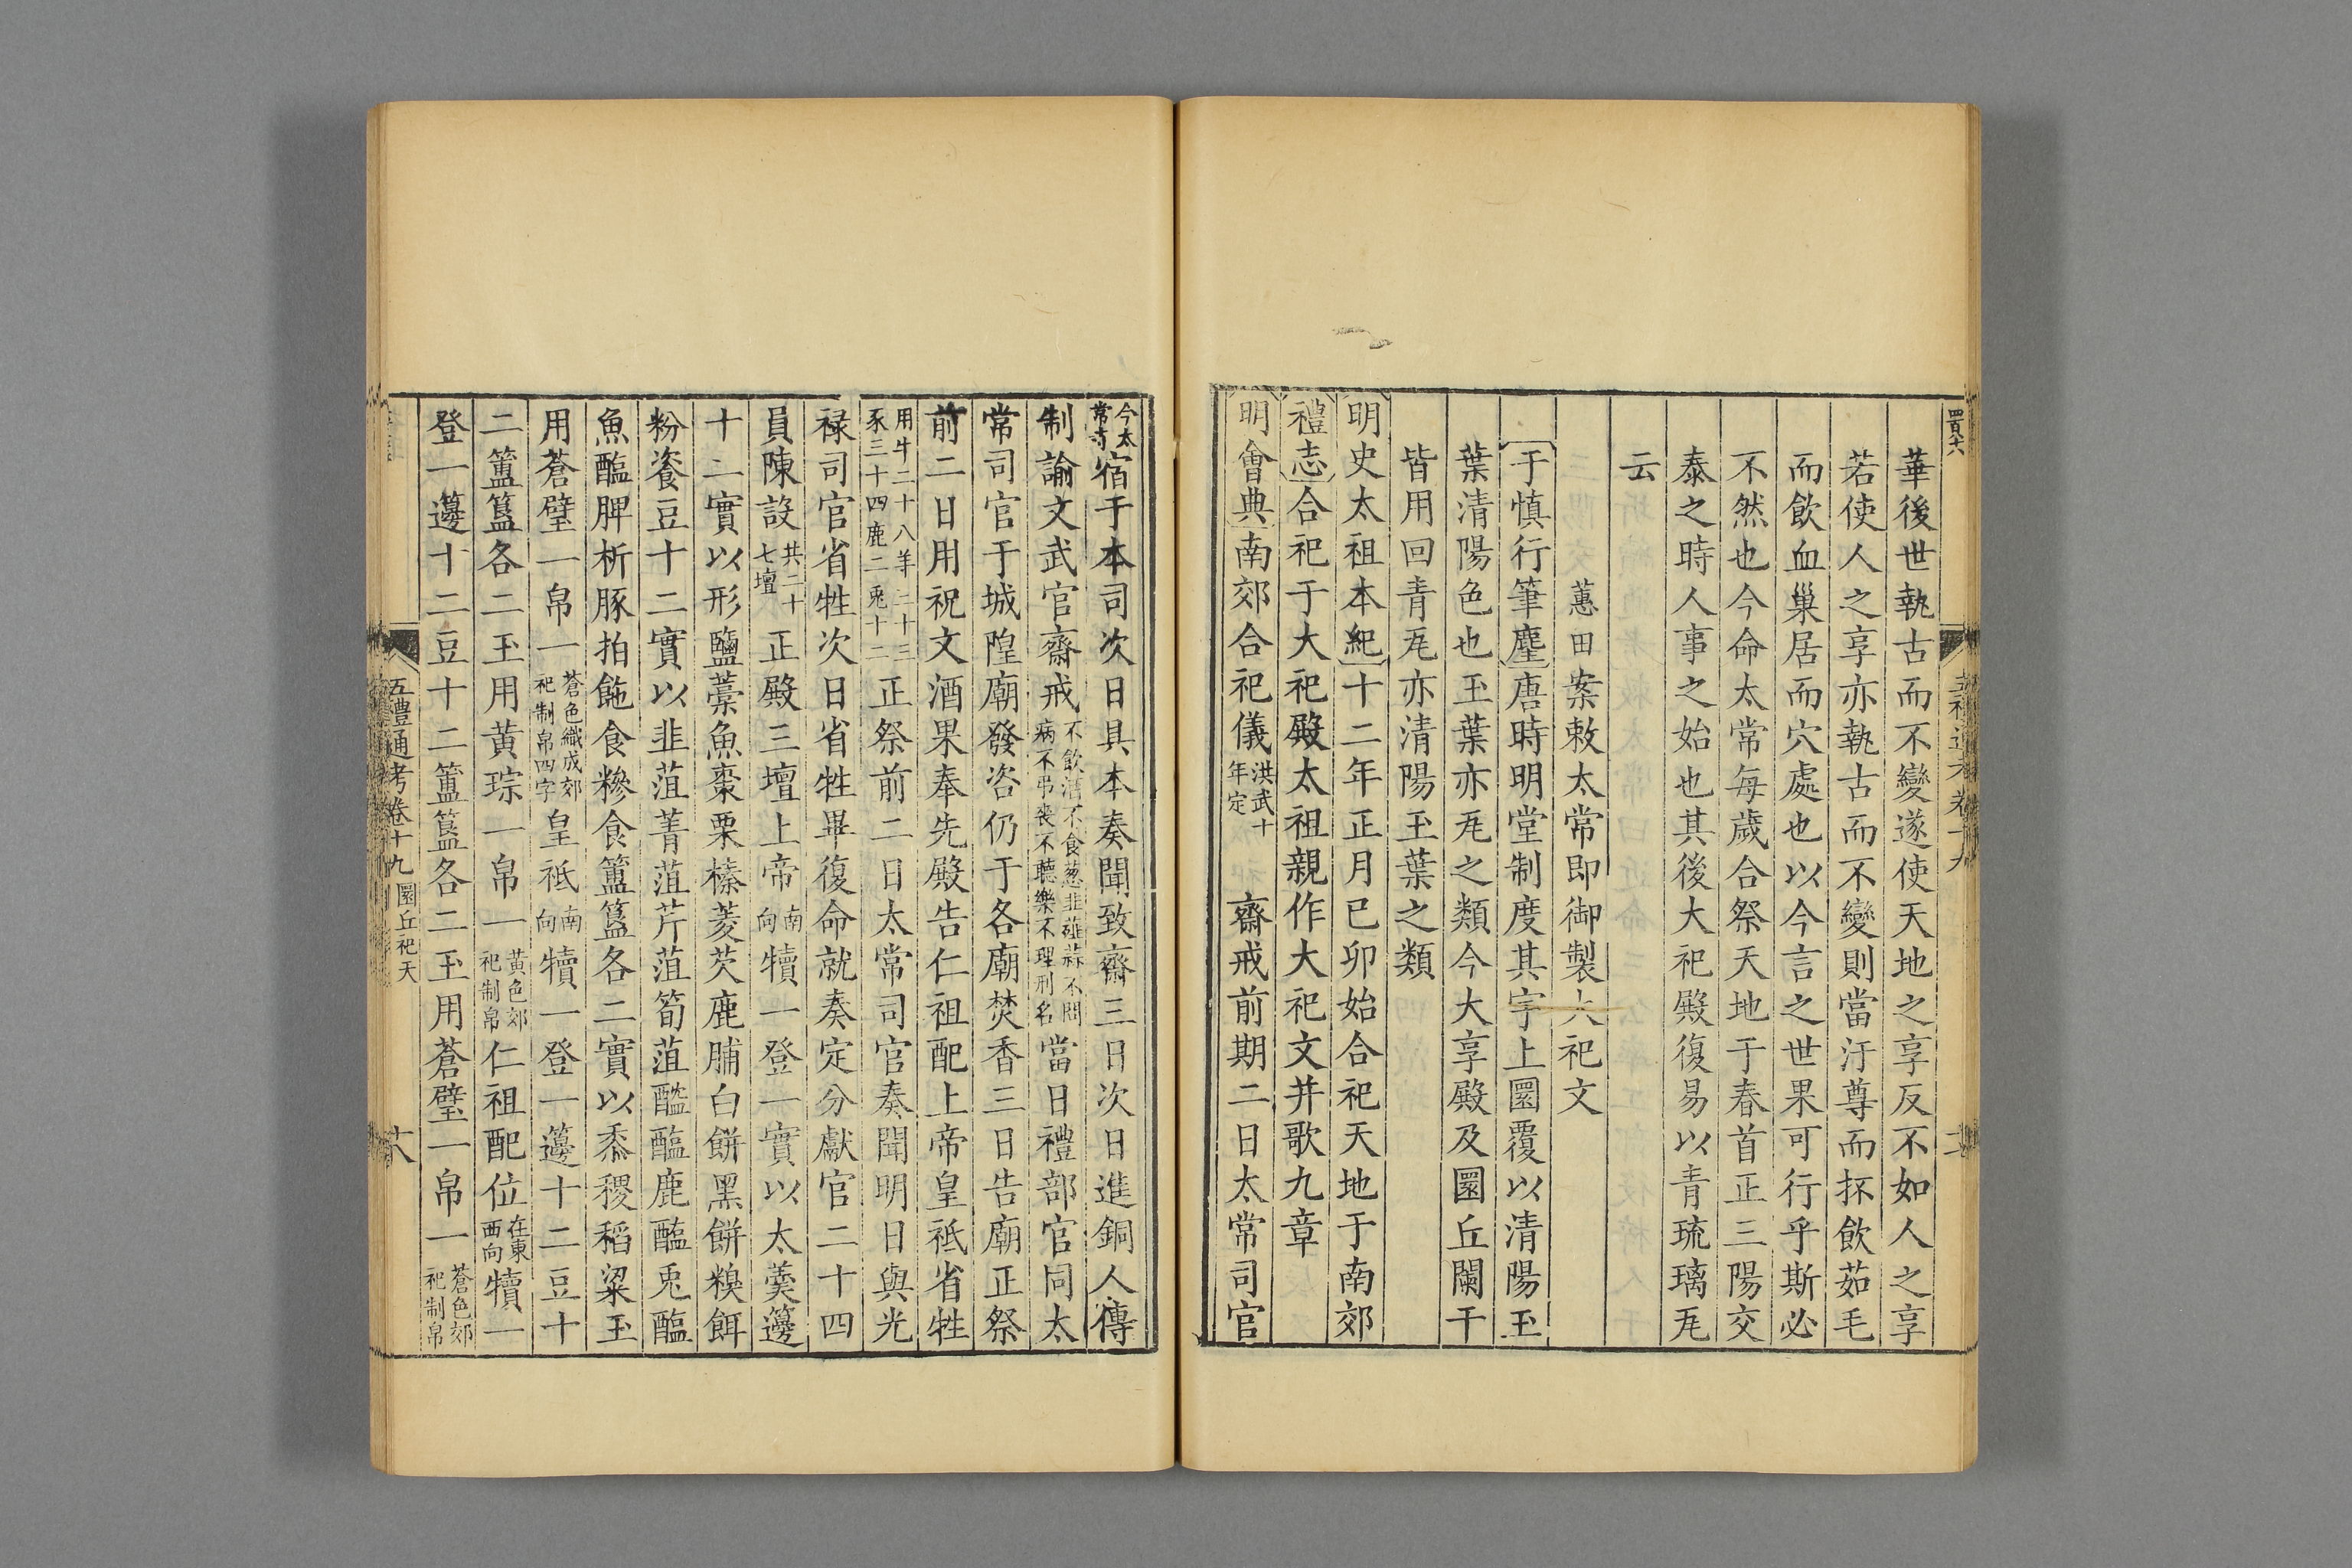 華後世執古而不變遂使天地之享反不如人之享
若使人之享亦執古而不變則當汙尊而抔飲茹毛
而飲血巢居而穴處也以今言之世果可行乎斯必
不然也今命太常每歲合祭天地于春首正三陽交
泰之時人事之始也其後大祀殿復易以青琉璃瓦
云
蕙田案敕太常即御製大祀文
于慎行筆麈唐時明堂制度其宇上圜覆以清陽玉
葉清陽色也玉葉亦瓦之類今大享殿及圜丘闌干
皆用回青瓦亦清陽玉葉之類
明史太祖本紀十二年正月己卯始合祀天地于南郊
禮志合祀于大祀殿太祖親作大祀文并歌九章
明會典南郊合祀儀洪武十年定 齋戒前期二日太常司官
今太常寺宿于本司次日具本奏聞致齋三日次日進銅人傳
制諭文武官齋戒不飲酒不食葱韭薤蒜不問病不弔喪不聽樂不理刑名當日禮部官同太
常司官于城隍廟發咨仍于各廟焚香三日告廟正祭
前二日用祝文酒果奉先殿告仁祖配上帝皇祇省牲
用牛二十八羊三十三豕三十四鹿二兎十二正祭前二日太常司官奏聞明日與光
祿司官省牲次日省牲畢復命就奏定分獻官二十四
員陳設共二十七壇正殿三壇上帝南向犢一登一實以太羹籩
十二實以形鹽薧魚棗栗榛菱芡鹿脯白餅黑餅糗餌
粉餈豆十二實以韭菹菁菹芹菹筍菹醓醢鹿醢兎醢
魚醢脾析豚拍飽食糝食簠簋各二實以黍稷稻粱玉
用蒼璧一帛一蒼色織成郊祀制帛四字皇祗南向犢一登一籩十二豆十
二簠簋各二玉用黃琮一帛一黃色郊祀制帛仁祖配位在東西向犢一
登一籩十二豆十二簠簋各二玉用蒼璧一帛一蒼色郊祀制帛
五禮通考卷十九圜丘祀天